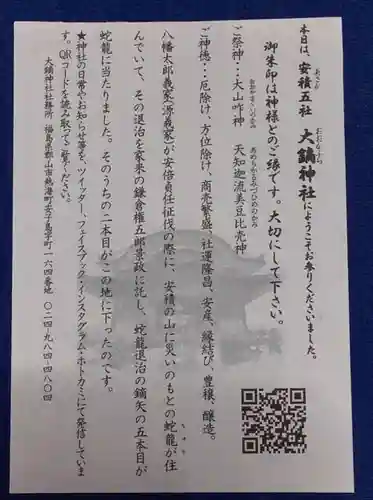 本日は、安積五社 大鏑神社にようこそお参りくださいました。
御朱印は神様とのご縁です。大切にして下さい。
ご祭神…大山咋神 天知迦流美豆比売神
ご神徳…厄除け、方位除け、商売繁盛、社運隆昌、安産、縁結び、豊穣、醸造。
八幡太郎義家源義家が安倍貞任征伐の際に、安積の山に災いのもとの蛇龍が住
んでいて、その退治を家来の鎌倉権五郎景政に託し、蛇龍退治の鏑矢の五本目が
蛇龍に当たりました。そのうちの二本目がこの地に下ったのです。
★神社の日常やお知らせ等を、ツイッター、フェイスブック・インスタグラム・ホトカミにて発信していま
す。QRコードを読み取ってご覧ください。
大鏑神社社務所 福島県郡山市熱海町安子島字町一六四番地 〇二四-九八四-四八〇四